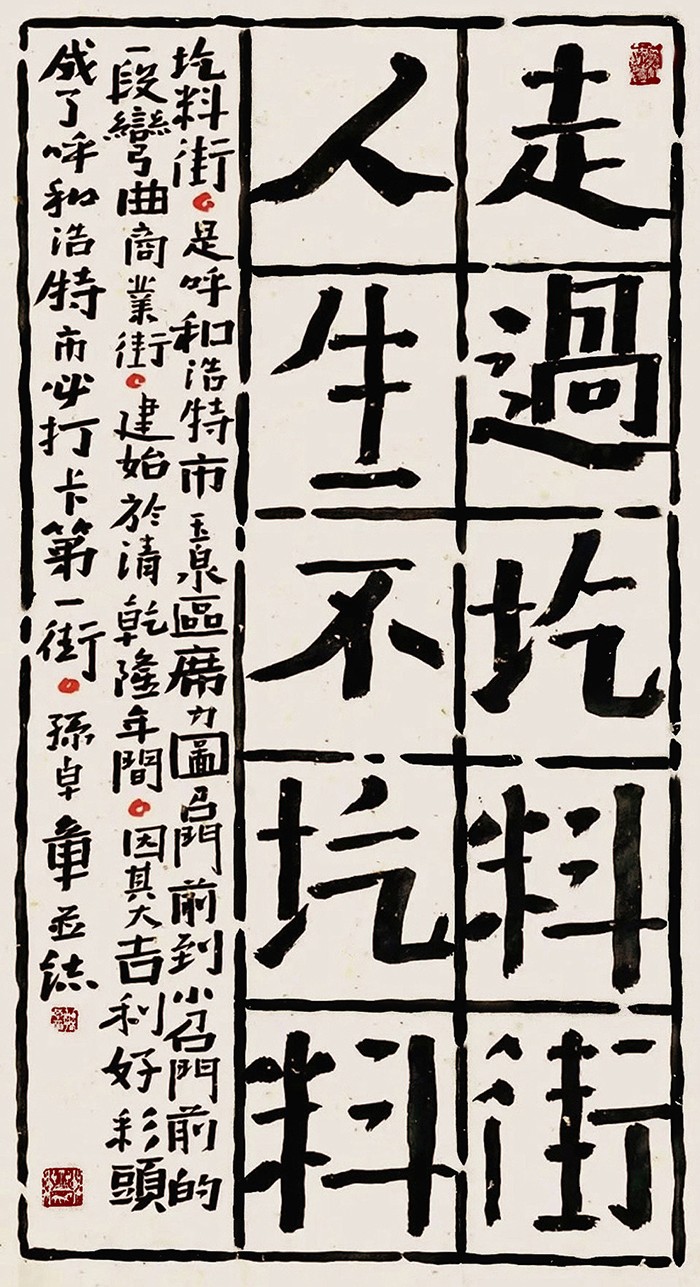 走過圪料街
人生不圪料
圪料街。是呼和浩特市玉泉區席力圖召門前到小召門前的
一段彎曲商業街。建始於清乾隆年間。因其大吉利好彩頭
成了呼和浩特市必打卡第一街。孫卓章並誌